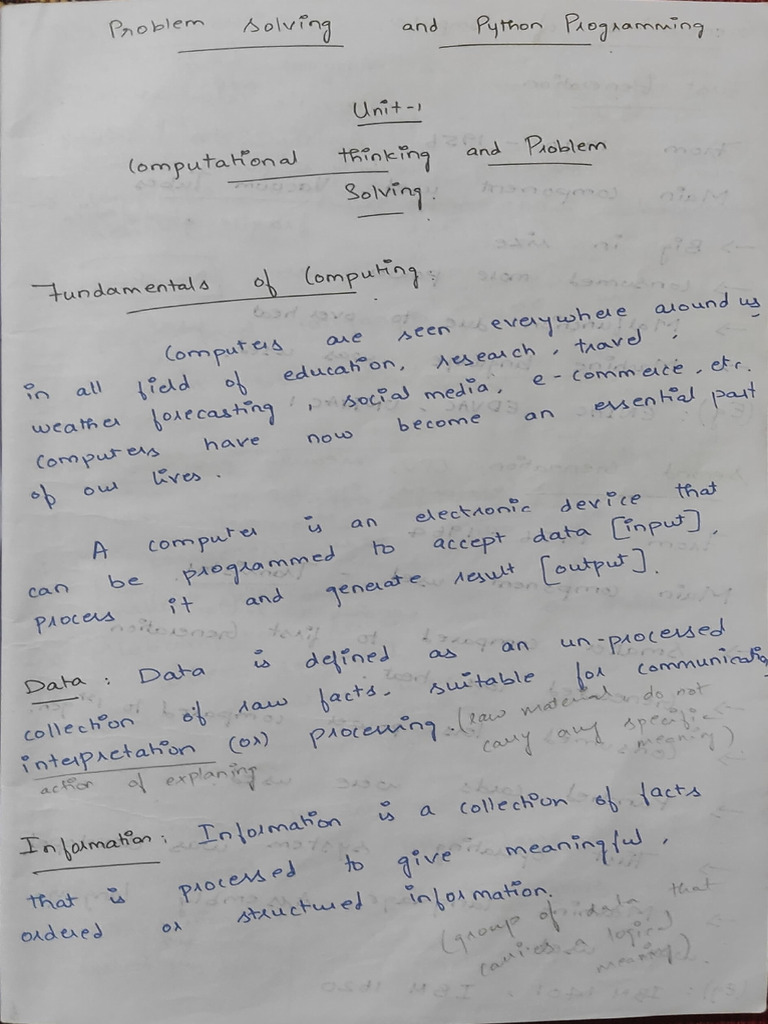 Problem solving and Python Programming
Unit-1
Computational thinking and Problem
Solving.
Fundamentals of Computing:
Computers are seen everywhere around us
in all field of education, research, travel,
weather forecasting, social media, e-commerce, etc.
Computers have now become an essential part
of our lives.
A computer is an electronic device that
can be programmed to accept data [input],
process it and generate result [output].
Data: Data is defined as an un-processed
collection of raw facts, suitable for communicatio
interpretation (or) processing. (raw material, do not
carry any specific
meaning)
action of explaning
Information: Information is a collection of facts
that is processed to give meaningful,
ordered or structured information.
(group of data that
carries a logical
meaning)